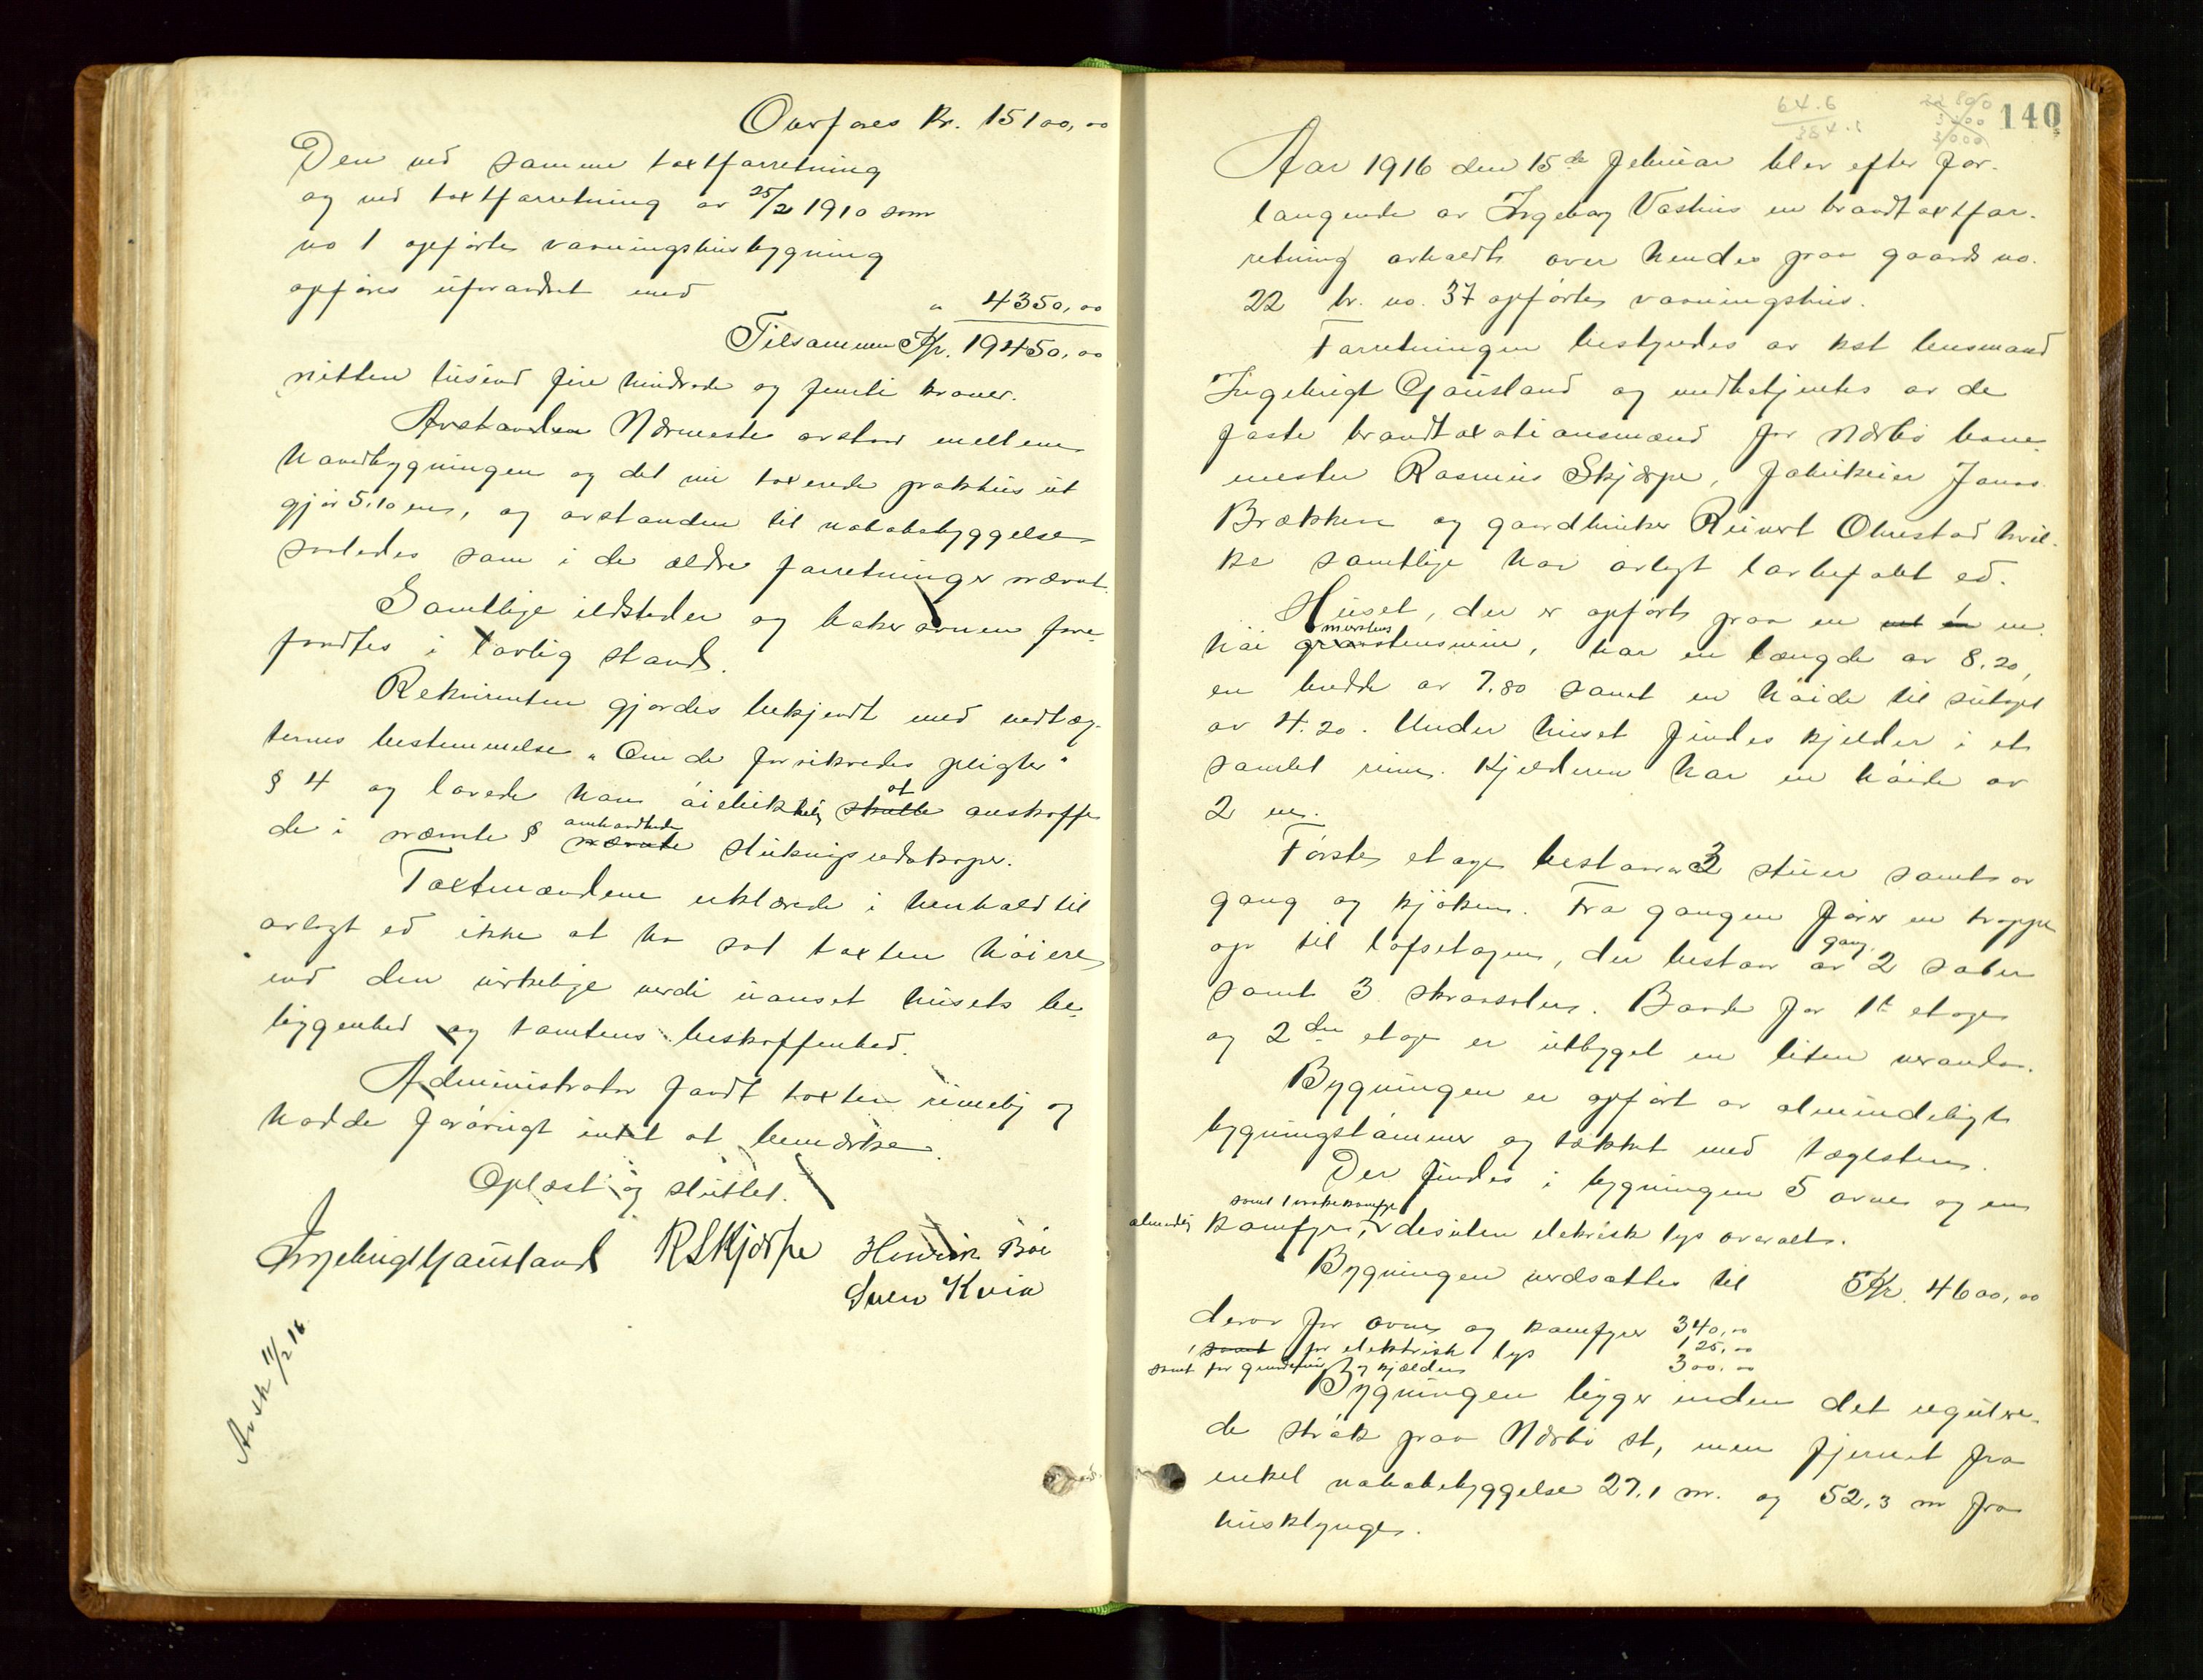 Overføres Kr. 15100,00
Den ved samme taxtforretning
og ved taxtforretning av 25/2 1910 som
no 1 opførte vaaningshusbygning
opføres uforandret med " 4350,00
Tilsammen Kr. 19450,00
nitten tusind fire hundrede og femti kroner.
Avstanden Nærmeste avstand mellem
hovedbygningen og det nu taxerede pakhus ut
gjør 5,10 m, og avstanden til nabobebyggelse
saaledes som i de ældre forretninger nævnt.
Samtlige ildsteder og bakerovnen fore
fandtes i lovlig stand.
Rekvirenten gjordes bekjendt med vedtæg-
ternes bestemmelse "Om de forsikredes pligter"
§ 4 og lovede han øieblikkelig skulle at anskaffe
de i nævnte § nævnte omhandlede slukningsredskaper.
Taxtmændene erklærede i henhold til
avlagt ed ikke at ha sat taxten høiere
end den virkelige verdi uanset husets be-
liggenhed og tomtens beskaffenhed.
Administrator fandt taxten rimelig og
hadde forøvrigt intet at bemærke.
Oplæst og sluttet.
Ingebrigt Gausland R Skjørpe Henrik Bøe
Sven Kvia
Avsk 11/2 16
64.6
140
Aar 1916 den 15de februar blev efter for-
langende av Ingeborg Vashus en brandtaxtfor-
retning avholdt over hendes paa gaards no.
22 br. no. 37 opførte vaaningshus.
Forretningen bestyredes av kst lensmand
Ingebrigt Gausland og medbetjentes av de
faste brandtaxationsmænd for Nærbø bane-
mester Rasmus Skjørpe, fabrikeier Jonas
Brækken og gaardbruker Reinert Obrestad hvil-
ke samtlige har avlagt lovbefalt ed.
Huset, der er opført paa en 1 m.
høi murstens graastensmur, har en længde av 8.20,
en bredde av 7.80 samt en høide til sutaget
av 4.20. Under huset findes kjelder i et
samlet rum. Kjelderen har en høide av
2 m.
Første etage bestaar av 3 stuer samt av
gang og kjøken. Fra gangen fører en trappe
op til loftsetagen, der bestaar av gang, 2 saler
samt 3 skraasaler. Baade for 1te etage
og 2den etage er utbygget en liten veranda.
Bygningen er opført av almindeligt
bygningstømmer og tækket med taglsten.
Der findes i bygningen 5 ovner og en
almindelig komfyr, samt 1 vaskekomfyr desuten elektrisk lys overalt.
Bygningen verdsattes til Kr. 4600,00
derav for ovne og komfyrer 340,00
samt for elektrisk lys 125,00
samt for grundmur og kjælder 300,00
Bygningen ligger inden det regulere-
de strøk paa Nærbø st, men fjernet fra
enkel nabobebyggelse 27,1 m. og 52,3 m fra
husklynge.